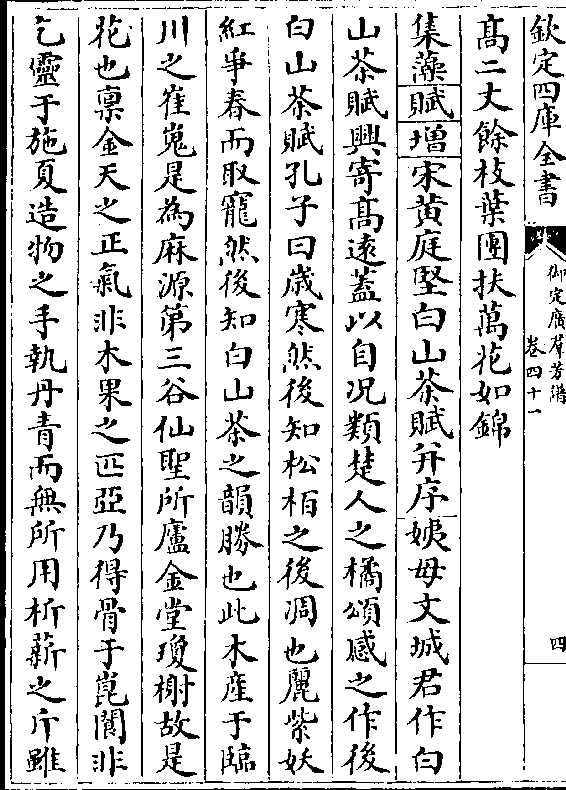 欽定四庫全書
御定廣羣芳譜
卷四十一
四
髙二丈餘枝葉團扶萬花如錦
集藻賦增宋黄庭堅白山茶賦并序姨母文城君作白
山茶賦興寄髙逺蓋以自况類楚人之橘頌感之作後
白山茶賦孔子曰歳寒然後知松栢之後凋也麗紫妖
紅爭春而取寵然後知白山茶之韻勝也此木産于臨
川之崔嵬是為麻源第三谷仙聖所廬金堂瓊榭故是
花也禀金天之正氣非木果之匹亞乃得骨于崑閬非
乞靈于施夏造物之手執丹青而無所用析薪之斤雖